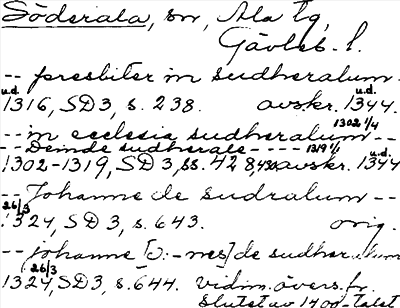 Söderala, sn, Ala tg,
Gävleb. l.
-- presbiter in sudheralum --
u.d. u.d.
1316, SD 3, s. 238. avskr. 1344.
1302 1/4
-- in ecclesia sudheralum --
-- Deinde sudherale ---- 1319 1/1
1302-1319, SD 3, ss. 428, 430 avskr. 1344 u.d.
-- Johanne de sudralum --
26/3
1324, SD 3, s. 643. orig.
-- johanne [ɔ: -nes] de sudheralum
26/3
1324, SD 3, s. 644. vidim. övers. fr.
slutet av 1400-talet